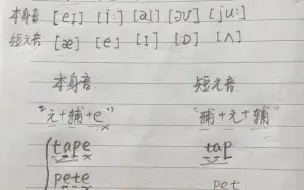 本身音 [eɪ] [i:] [aɪ] [əʊ] [ju:]
短元音 [æ] [e] [ɪ] [ɒ] [ʌ]
本身音 短元音
"元+辅+e" "辅+元+辅"
tape tap
pete pet